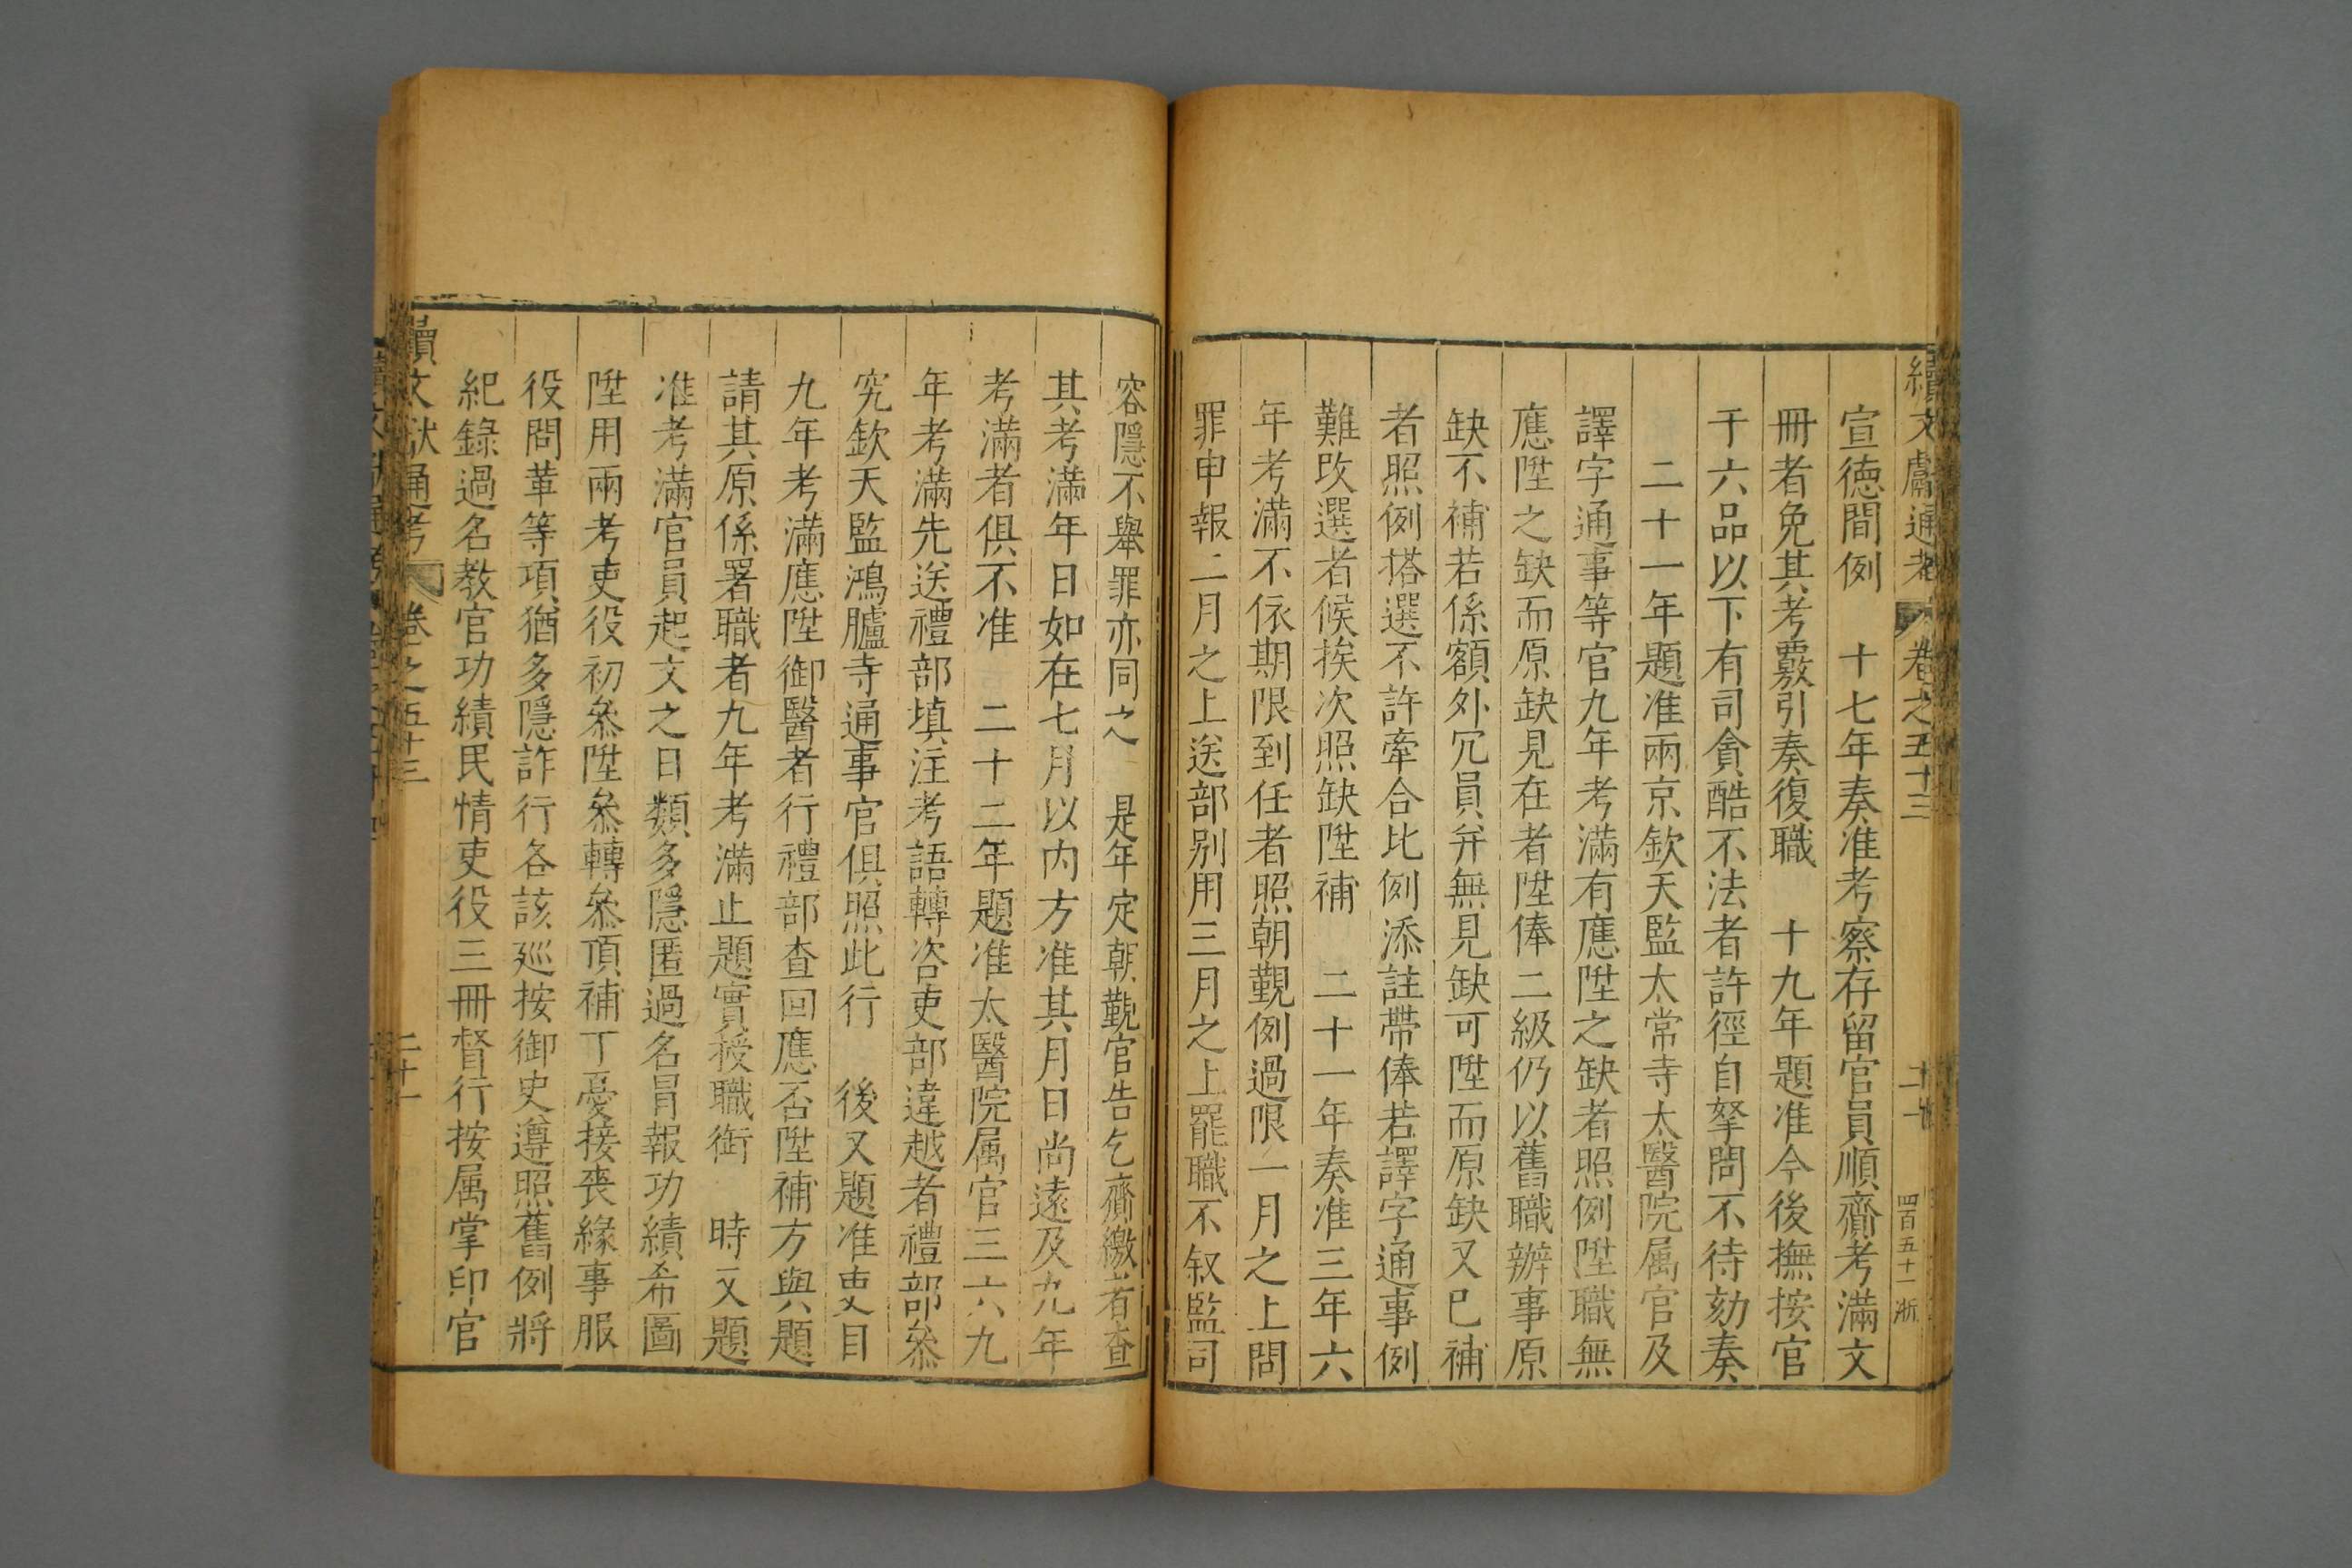 續文獻通考 卷之五十三 二十一 四百五十一 浙
宣德間例　十七年奏准考察存留官員順齎考滿文
冊者免其考覈引奏復職　十九年題准今後撫按官
于六品以下有司貪酷不法者許徑自拏問不待劾奏
二十一年題准兩京欽天監太常寺太醫院属官及
譯字通事等官九年考滿有應陞之缺者照例陞職無
應陞之缺而原缺見在者陞俸二級仍以舊職辦事原
缺不補若係額外冗員弁無見缺可陞而原缺又已補
者照例搭選不許牽合比例添註帶俸若譯字通事例
難改選者候挨次照缺陞補　二十一年奏准三年六
年考滿不依期限到任者照朝覲例過限一月之上問
罪申報二月之上送部別用三月之上罷職不叙監司
容隱不舉罪亦同之　是年定朝覲官告乞齎繳者查
其考滿年日如在七月以内方准其月日尚遠及九年
考滿者俱不准　二十二年題准太醫院属官三六九
年考滿先送禮部填注考語轉咨吏部違越者禮部叅
究欽天監鴻臚寺通事官俱照此行　後又題准吏目
九年考滿應陞御醫者行禮部查回應否陞補方與題
請其原係署職者九年考滿止題實授職銜　時又題
准考滿官員起文之日類多隱匿過名冒報功績希圖
陞用兩考吏役初叅陞叅轉叅頂補丁憂接喪緣事服
役問革等項猶多隱詐行各該巡按御史遵照舊例將
紀錄過名教官功績民情吏役三冊督行按属掌印官
續文獻通考 卷之五十三 二十一